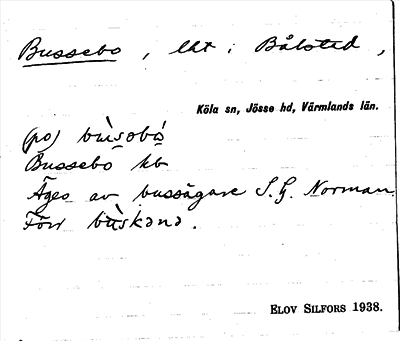 Bussebo, lht i Bålstad,
Köla sn, Jösse hd, Värmlands län.
(po) bùsobó
Bussebo kb
Äges av bussägare S. G. Norman.
Förr bùskənə.
ELOV SILFORS 1938.